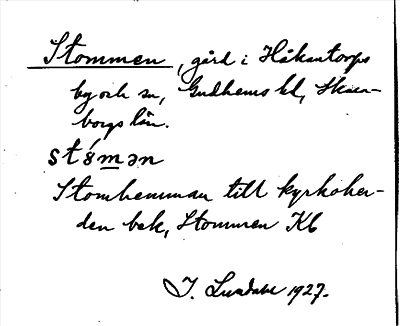 Stommen, gård i Håkantorps
by och sn, Gudhems hd, Skara-
borgs län.
stómən
Stomhemman till kyrkoher-
den bek, Stommen Kb
J. Lundahl 1927.